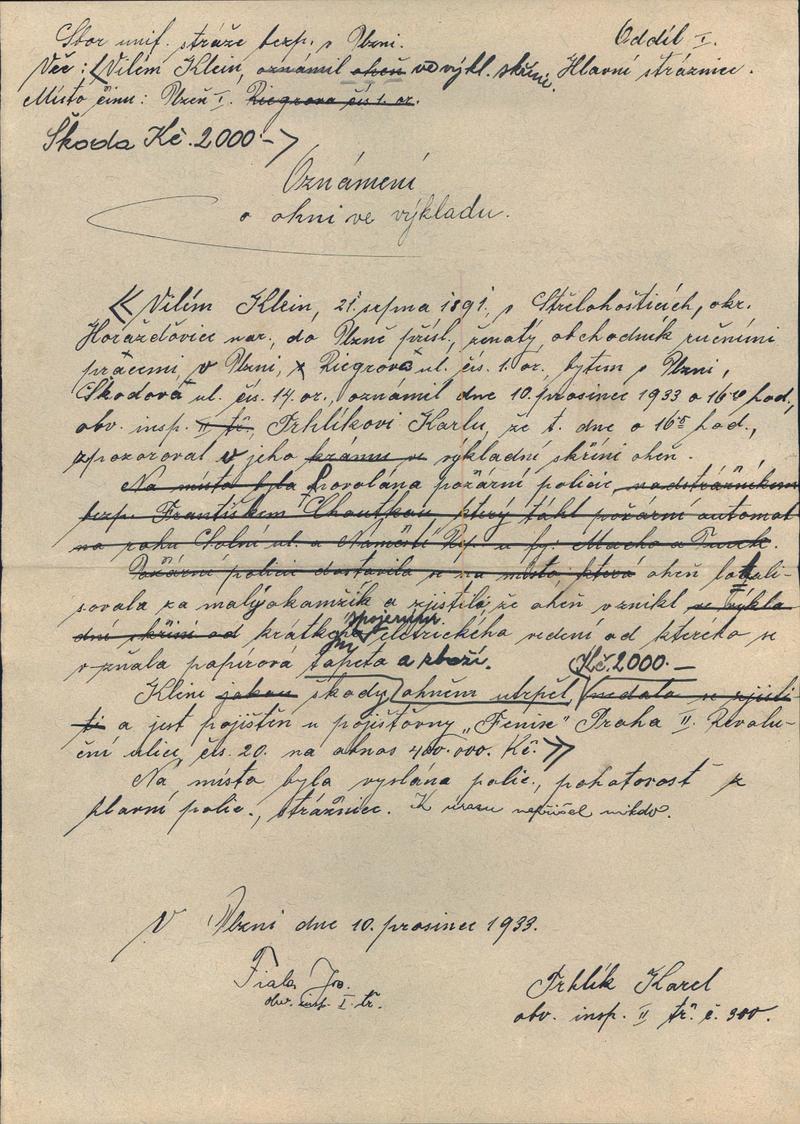 Sbor unif. stráže bezp. v Plzni. Oddíl I.
Věc: Vilém Klein, oznámil oheň ve výkl. skříni. Hlavní strážnice.
Místo činu: Plzeň I. Riegrova čís 1. or.
Škoda Kč. 2000·-
Oznámení
o ohni ve výkladu.
Vilím Klein, 21. srpna 1891. v Střelohošticích, okr.
Horažďovice nar., do Plzně přísl., ženatý, obchodník ručními
pracemi, v Plzni, Riegrova ul. čís. 1. or., bytem v Plzni,
Škodova ul. čís. 14. or., oznámil dne 10. prosinec 1933 o 16 hod,
obv. insp. II tř. Trhlíkovi Karlu, že t. dne o 16 hod.,
zpozoroval v jeho krámu ve výkladní skříni oheň.
Na místo byla Povolána požární policie, nadstrážníkem
bezp. Františkem Choutkou který táhl požární automat
na rohu Solní ul. a Náměstí Rep. u fy: Macho a
Požární policie dostavila se na místo která oheň lokali-
sovala za malý okamžik a zjistila, že oheň vznikl ve výkla
dní skříni od krátkého spojením eletrického vedení od kterého se
vzňala papírová tapeta a zboží.
Kč. 2000.—
Klein jakou škody ohněm utrpěl, nedalo se zjisti
ti a jest pojištěn u pojišťovny „Fenix" Praha II. Revolu-
ční ulice, čís. 20. na obnos 400.000. Kč.
Na místo byla vyslána polic., pohotovost z
hlavní polic., strážnice. K úrazu nepřišel nikdo.
V Plzni dne 10. prosinec 1933.
Fiala Jos.
obv. insp. I. tř.
Trhlík Karel
obv. insp. II tř. č. 300.